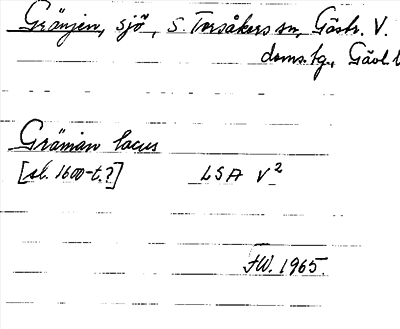 Gränjen, sjö, S. Torsåkers sn, Gästr. V.
doms.hg., Gävl. l
Gränian lacus
[sl. 1600-t.?] LSA V²
FW. 1965.